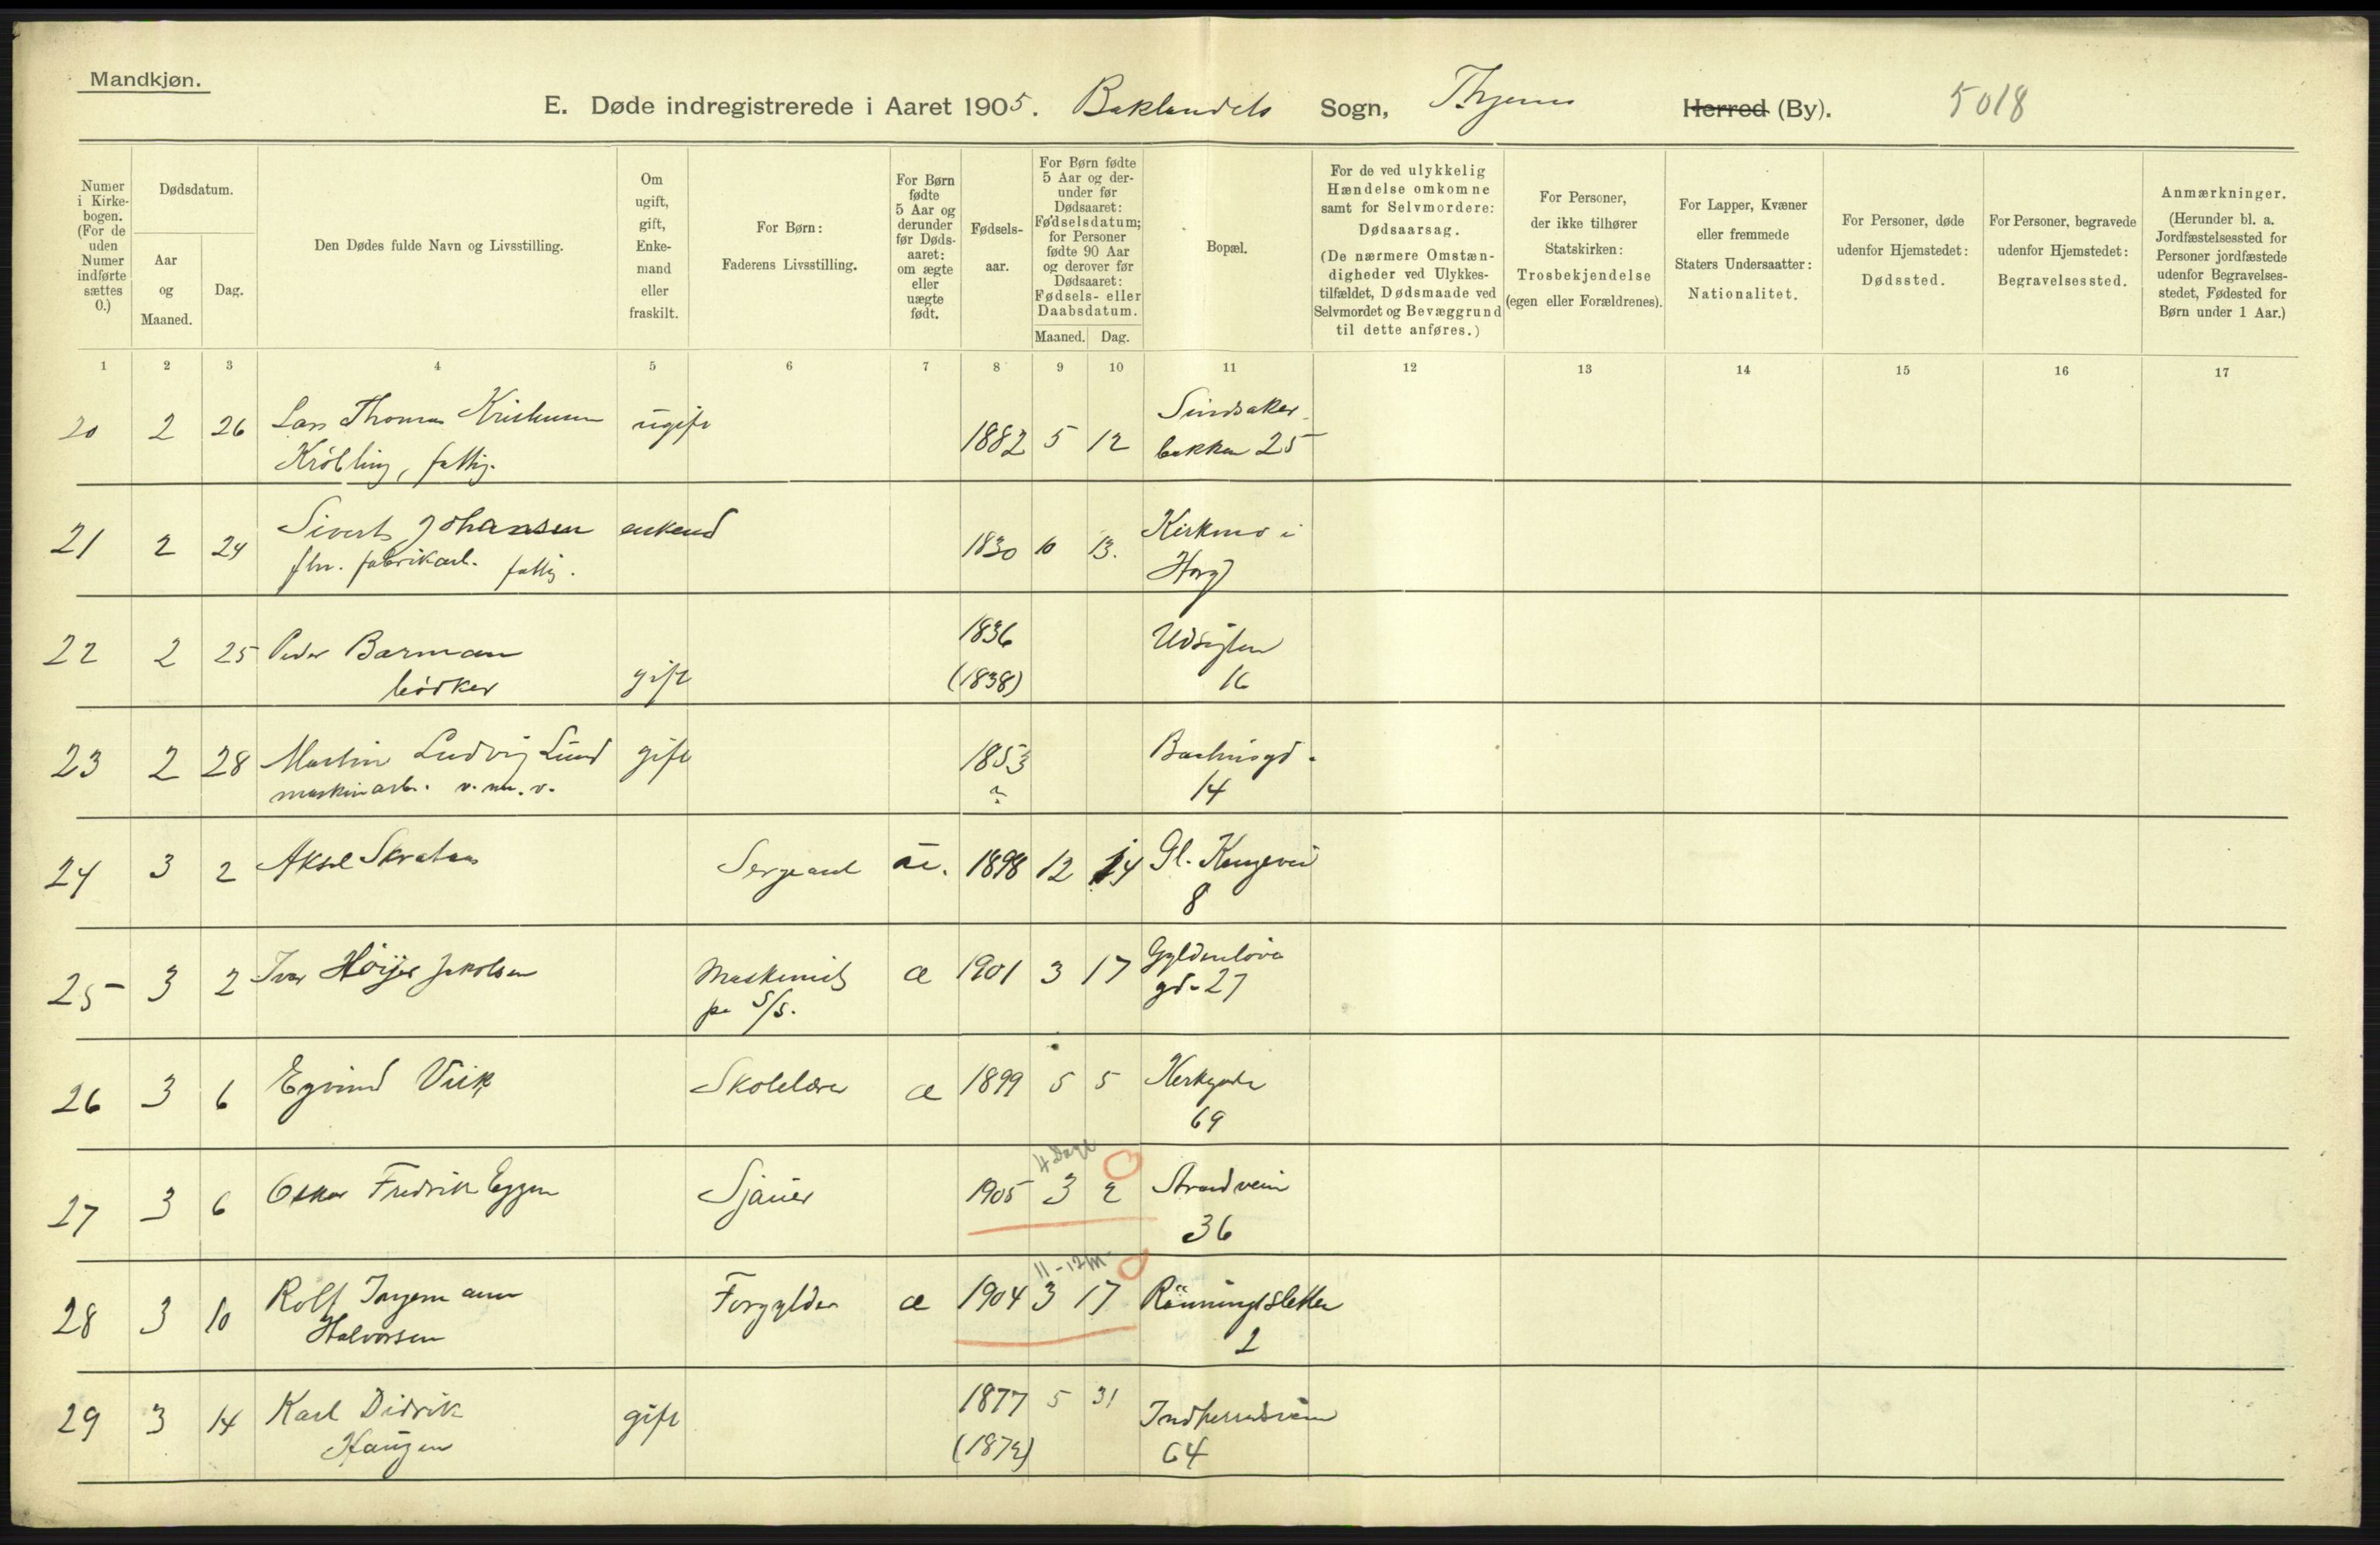 Mandkjøn.
E. Døde indregistrerede i Aaret 1905. Baklandets Sogn, Thjems Herred (By). 5018
Numer i Kirkebogen. (For de uden Numer indførte sættes 0.)
Dødsdatum.
Aar og Maaned.
Dag.
Den Dødes fulde Navn og Livsstilling.
Om ugift, gift, Enkemand eller fraskilt.
For Børn: Faderens Livsstilling.
For Børn fødte 5 Aar og derunder før Dødsaaret: om ægte eller uægte født.
Fødselsaar.
For Børn fødte 5 Aar og derunder før Dødsaaret: Fødselsdatum; for Personer fødte 90 Aar og derover før Dødsaaret: Fødsels- eller Daabsdatum.
Maaned. Dag.
Bopæl.
For de ved ulykkelig Hændelse omkomne samt for Selvmordere: Dødsaarsag. (De nærmere Omstændigheder ved Ulykkestilfældet, Dødsmaade ved Selvmordet og Bevæggrund til dette anføres.)
For Personer, der ikke tilhører Statskirken: Trosbekjendelse (egen eller Forældrenes).
For Lapper, Kvæner eller fremmede Staters Undersaatter: Nationalitet.
For Personer, døde udenfor Hjemstedet: Dødssted.
For Personer, begravede udenfor Hjemstedet: Begravelsessted.
Anmærkninger. (Herunder bl. a. Jordfæstelsessted for Personer jordfæstede udenfor Begravelsesstedet, Fødested for Børn under 1 Aar.)
1 2 3 4 5 6 7 8 9 10 11 12 13 14 15 16 17
20 2 26 Lars Thomas Kristensen ugift 1882 5 12 Sindsaker
Krøbling, fattig. bakken 25
21 2 24 Sivert Johansen enkemd 1830 10 13. Kirkmo i
fhv. fabrikarb. fattig. Horg
22 2 25 Peder Barman 1836 Udsigten
bødker gift (1838) 16
23 2 28 Martin Ludvig Lund gift 1853 Bachusgd.
maskinarb. v. m. v. ? 14
24 3 2 Aksel Skrataas Sergeant æ. 1898 12 14 Gl. Kongevei
8
25 3 2 Ivar Höijer Jakobsen Maskinist æ 1901 3 17 Gyldenløves
pa S/S. gd. 27
26 3 6 Eyvind Viik Skolelærer æ 1899 5 5 Kirkegade
69
4 Dage
27 3 6 Oskar Fredrik Eggen Sjauer 1905 3 2 Strandvein
36
11-12 M
28 3 10 Rolf Ingemann Forgylder æ 1904 3 17 Rønningsletten
Halvorsen 2
29 3 14 Karl Didrik gift 1877 5 31 Indherredsvein
Haugen (1872) 64